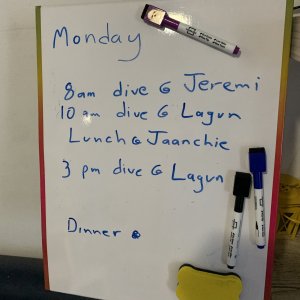 Monday
8am dive @ Jeremi
10 am dive @ Lagun
Lunch @ Jaanchie
3 pm dive @ Lagun
Dinner @